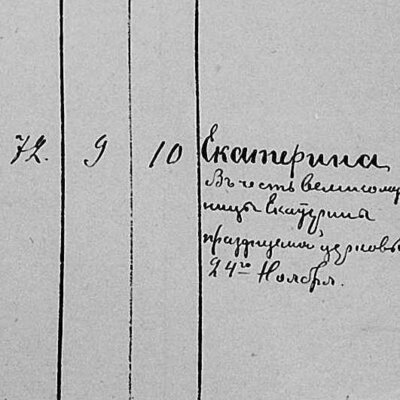 72. 9 10 Екатерина
Въ честь великому
ницы Екатерины
празднуемой церковью
24го Ноября.